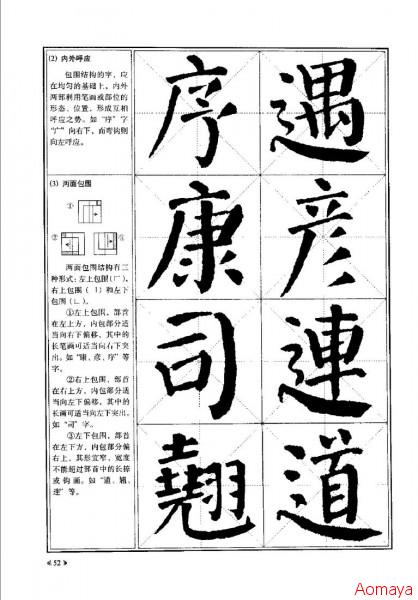 (2) 内外呼应
包围结构的字，应
在均匀的基础上，内外
两部利用笔画或部位的
形态、位置，形成互相
呼应之势。如“序”字
“广”向右下，而弯钩则
向左呼应。
(3) 两面包围
①
②
③
两面包围结构有三
种形式：左上包围(厂)、
右上包围(㇆)和左下
包围(㇄)。
①左上包围，部首
在左上方，内包部分适
当向右下偏移，其中的
长笔画可适当向右下突
出。如“康、彦、序”等
字。
②右上包围，部首
在右上方，内包部分适
当向左下偏移，其中的
长画可适当向左下突出，
如“司”字。
③左下包围，部首
在左下方，内包部分偏
右上，其形宜窄，宽度
不能超过部首中的长捺
或钩画。如“道、翘、
连”等。
序 遇
康 彦
司 連
翹 道
≪52≫
Aomaya